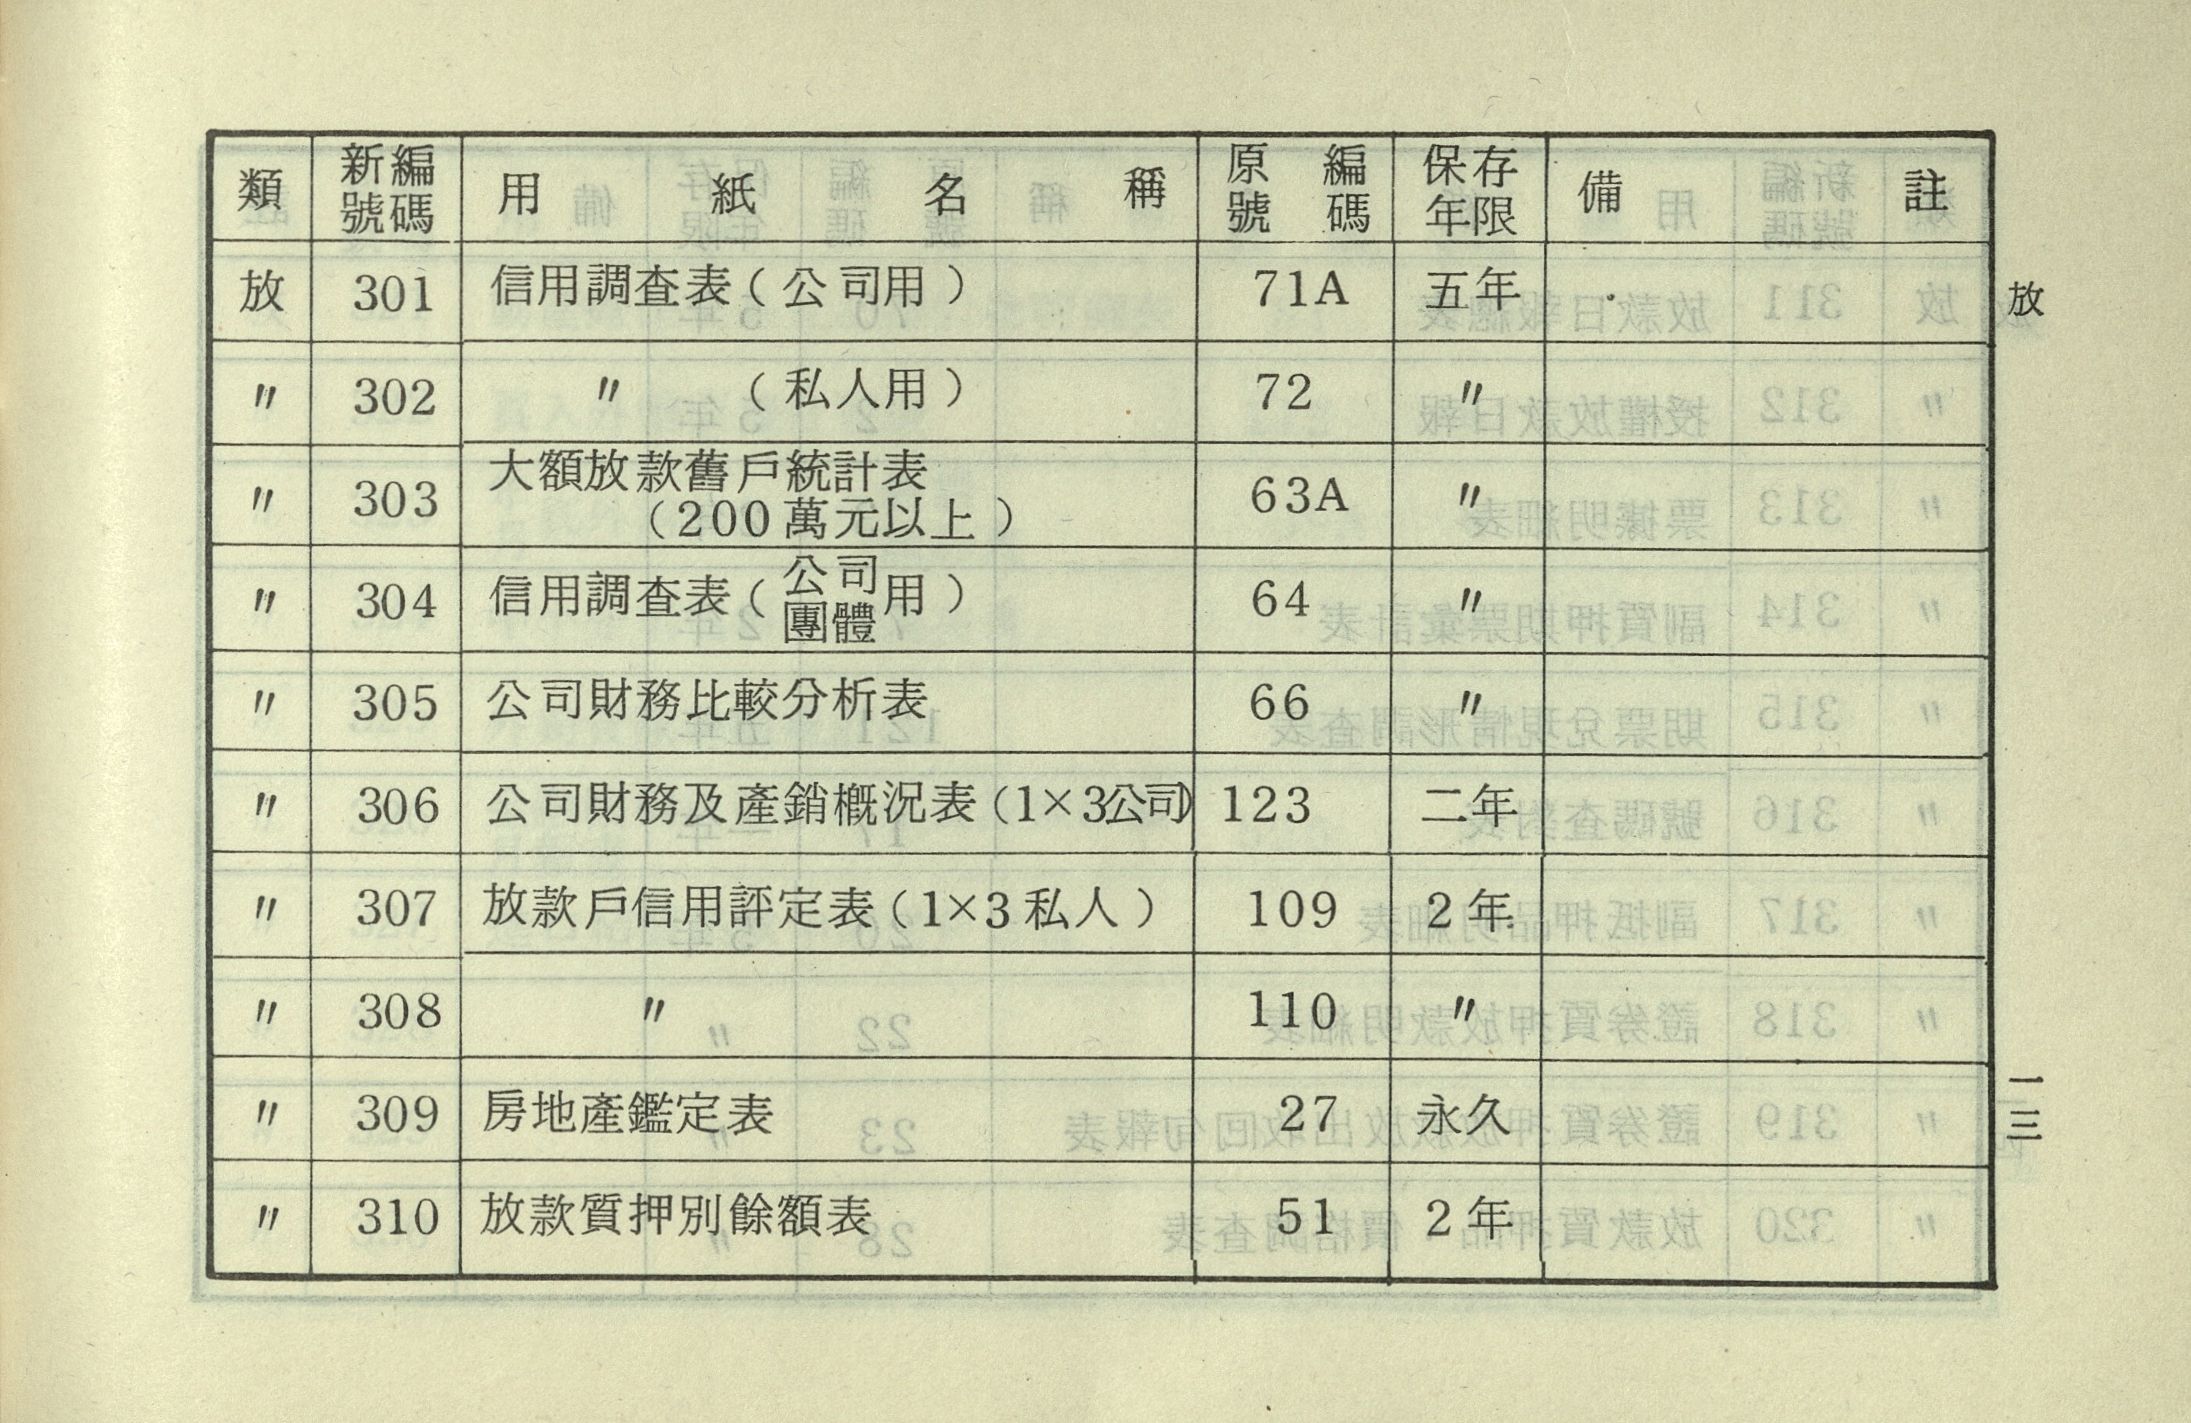 類 新編號碼 用紙名稱 原編號碼 保存年限 備註
放 301 信用調查表(公司用) 71A 五年
〃 302 〃 (私人用) 72 〃
〃 303 大額放款舊戶統計表 63A 〃
(200萬元以上)
〃 304 信用調查表(公司團體用) 64 〃
〃 305 公司財務比較分析表 66 〃
〃 306 公司財務及產銷概況表(1×3公司) 123 二年
〃 307 放款戶信用評定表(1×3私人) 109 2年
〃 308 〃 110 〃
〃 309 房地產鑑定表 27 永久
〃 310 放款質押別餘額表 51 2年
放
一三